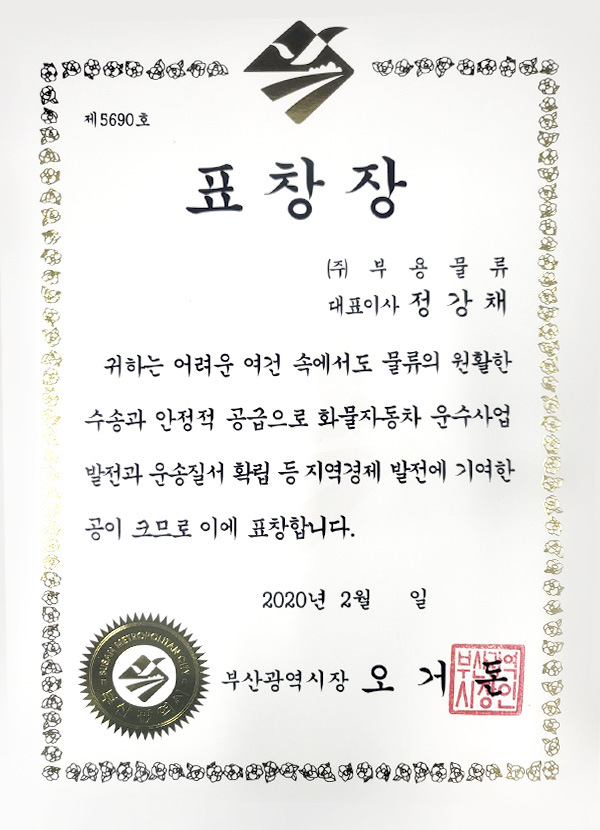 제5690호
표창장
㈜ 부용물류
대표이사 정강채
귀하는 어려운 여건 속에서도 물류의 원활한
수송과 안정적 공급으로 화물자동차 운수사업
발전과 운송질서 확립 등 지역경제 발전에 기여한
공이 크므로 이에 표창합니다.
2020년 2월 일
BUSAN METROPOLITAN CITY
부산광역시
부산광역시장 오거돈
부산광역
시장인